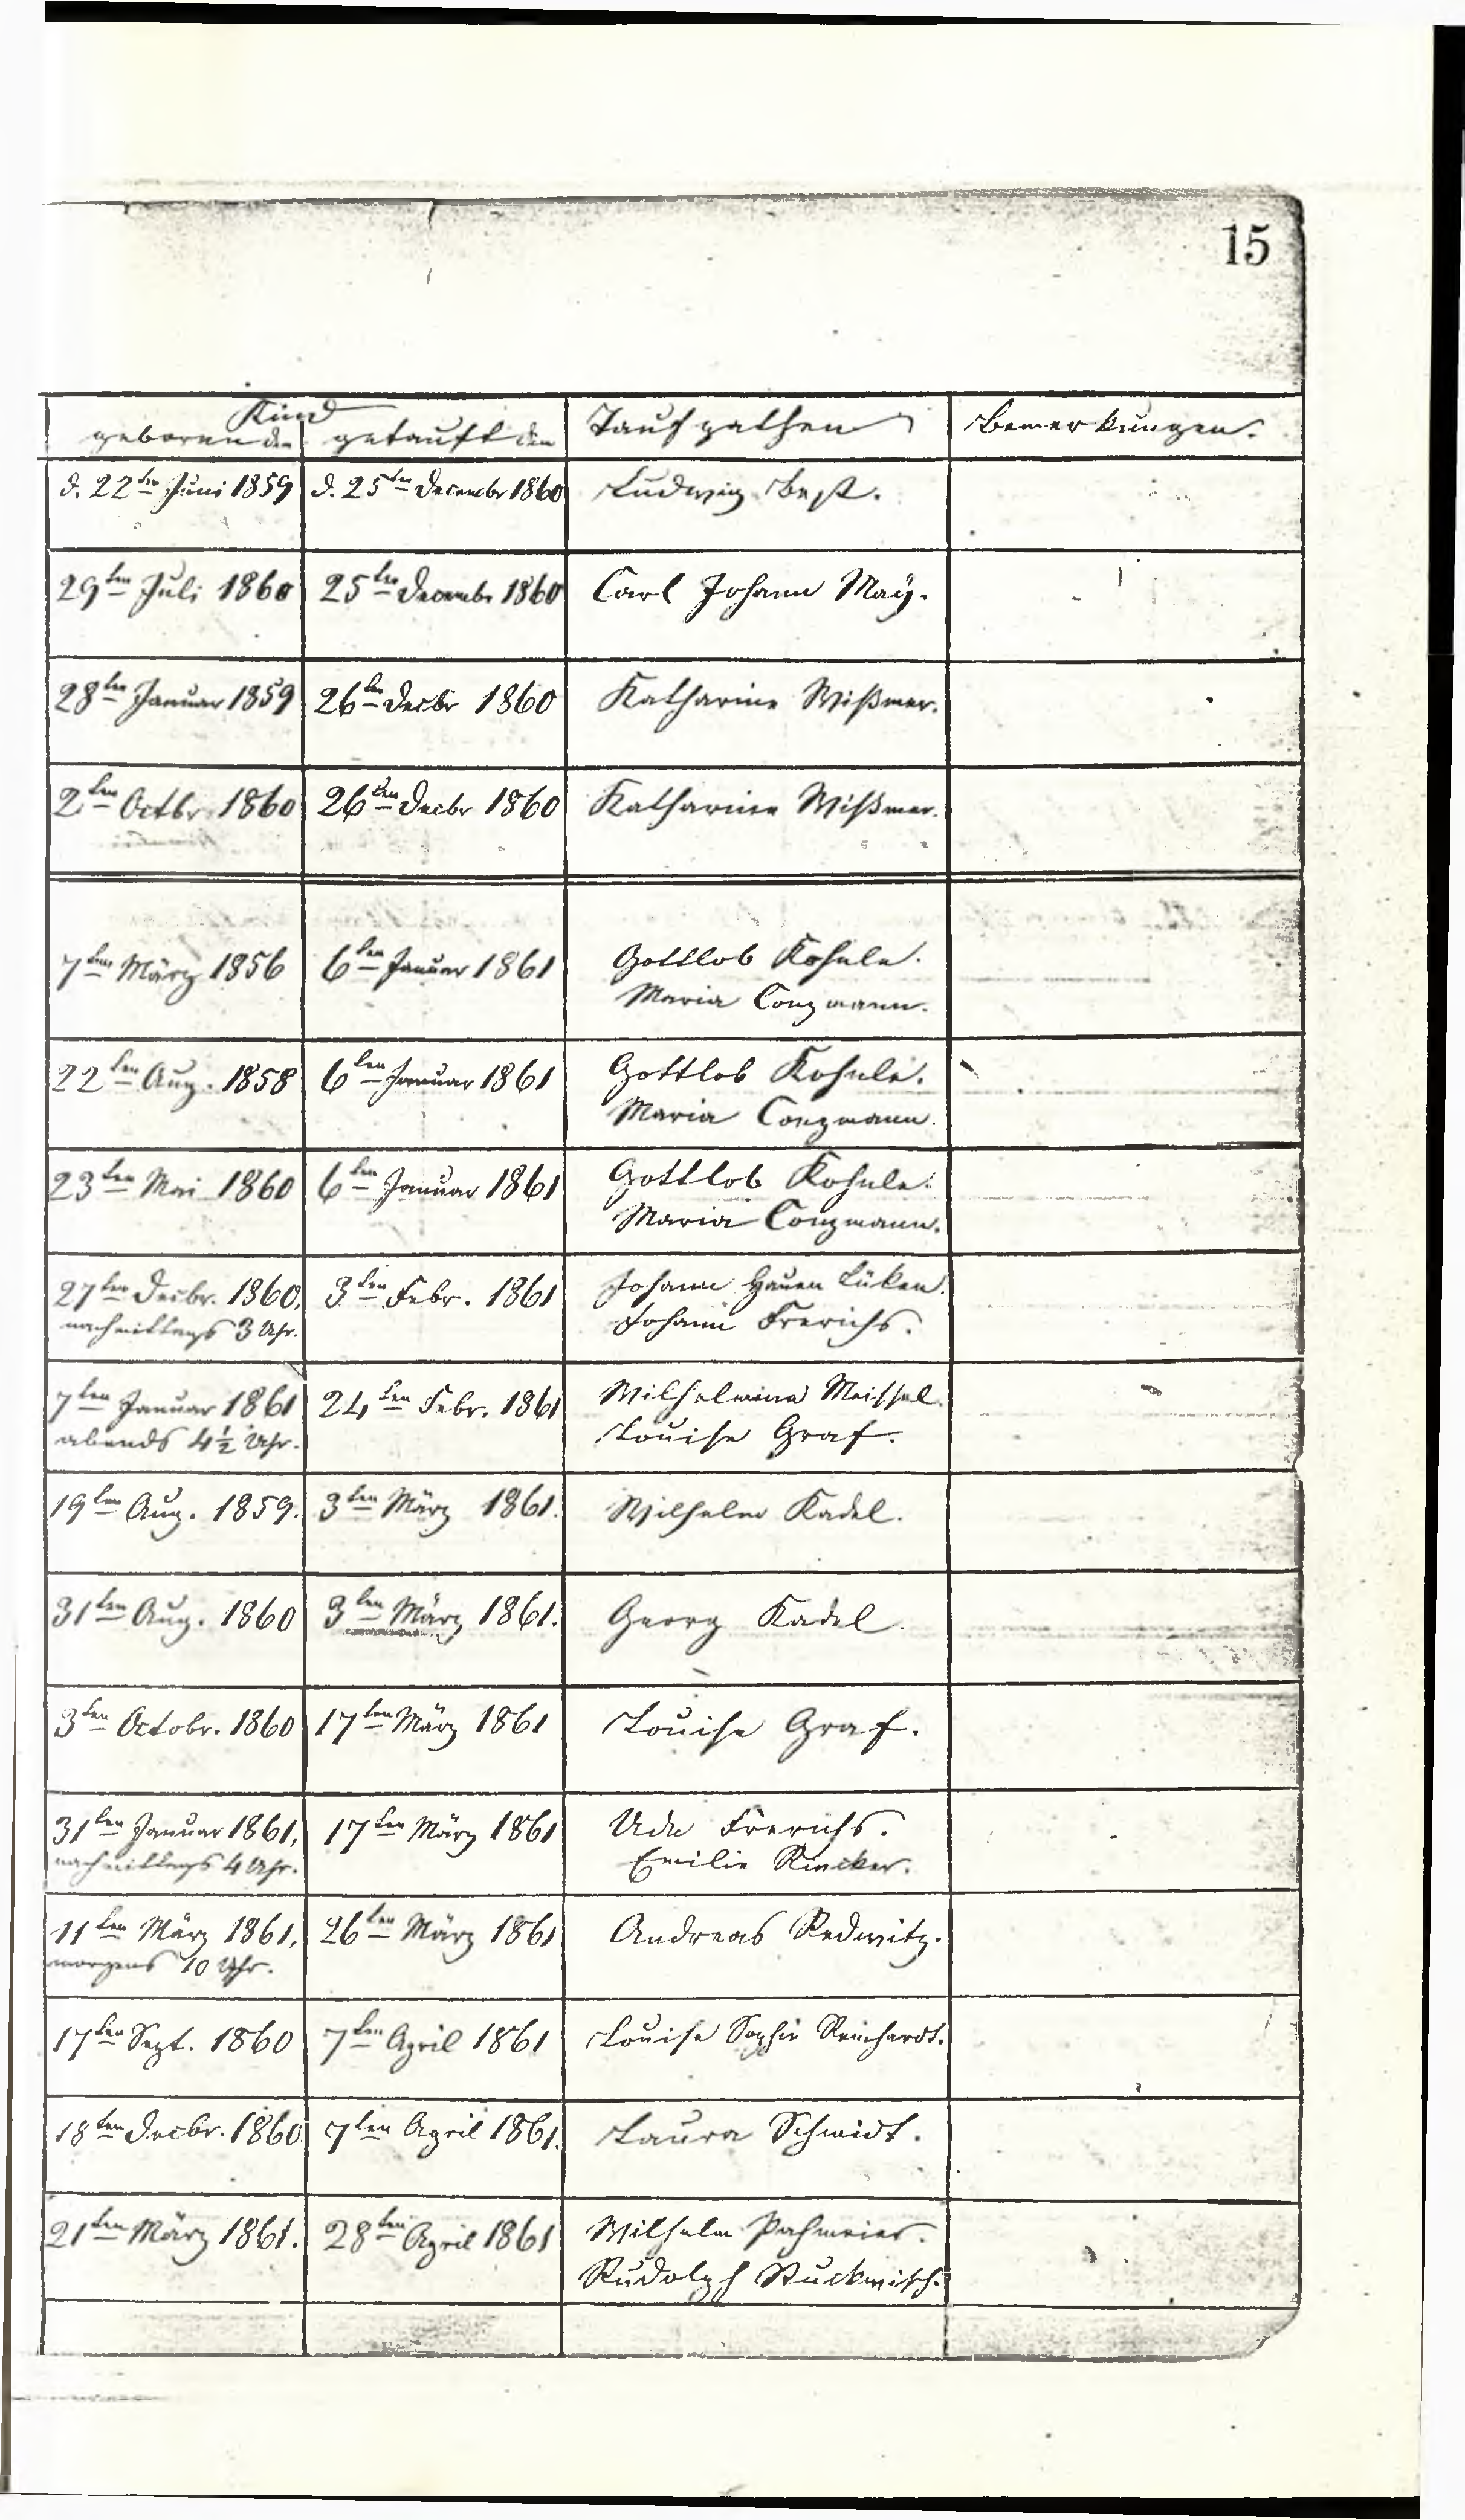 15
Kind
geboren den getauft den Taufpathen Bemerkungen.
d. 22ten Juni 1859 d. 25ten Decembr 1860 Ludwig Best.
29ten Juli 1860 25ten Decembr 1860 Carl Johann Maÿ.
28ten Januar 1859 26ten Decbr 1860 Katharine Wißmer.
2ten Octbr 1860 26ten Decbr 1860 Katharine Wißmer.
7ten März 1856 6ten Januar 1861 Gottlob Kohnle.
Maria Conzmann.
22ten Aug. 1858 6ten Januar 1861 Gottlob Kohnle.
Maria Conzmann.
23ten Mai 1860 6ten Januar 1861 Gottlob Kohnle.
Maria Conzmann.
27ten Decbr. 1860, 3ten Febr. 1861 Johann Hauen Lüken.
nachmittags 3 Uhr. Johann Frerichs.
7ten Januar 1861 24ten Febr. 1861 Wilhelmine Meissel.
abends 4 1/2 Uhr. Louise Graf.
19ten Aug. 1859. 3ten März 1861. Wilhelm Kadel.
31ten Aug. 1860 3ten März 1861. Georg Kadel.
3ten Octobr. 1860 17ten März 1861 Louise Graf.
31ten Januar 1861, 17ten März 1861 Ude Frerichs.
nachmittags 4 Uhr. Emilie Rincker.
11ten März 1861, 26ten März 1861 Andreas Redwitz.
morgens 10 Uhr.
17ten Sept. 1860 7ten April 1861 Louise Sophie Reinhardt.
18ten Decbr. 1860 7ten April 1861. Laura Schmidt.
21ten März 1861. 28ten April 1861 Wilhelm Pahmeier.
Rudolph Stuckwisch.